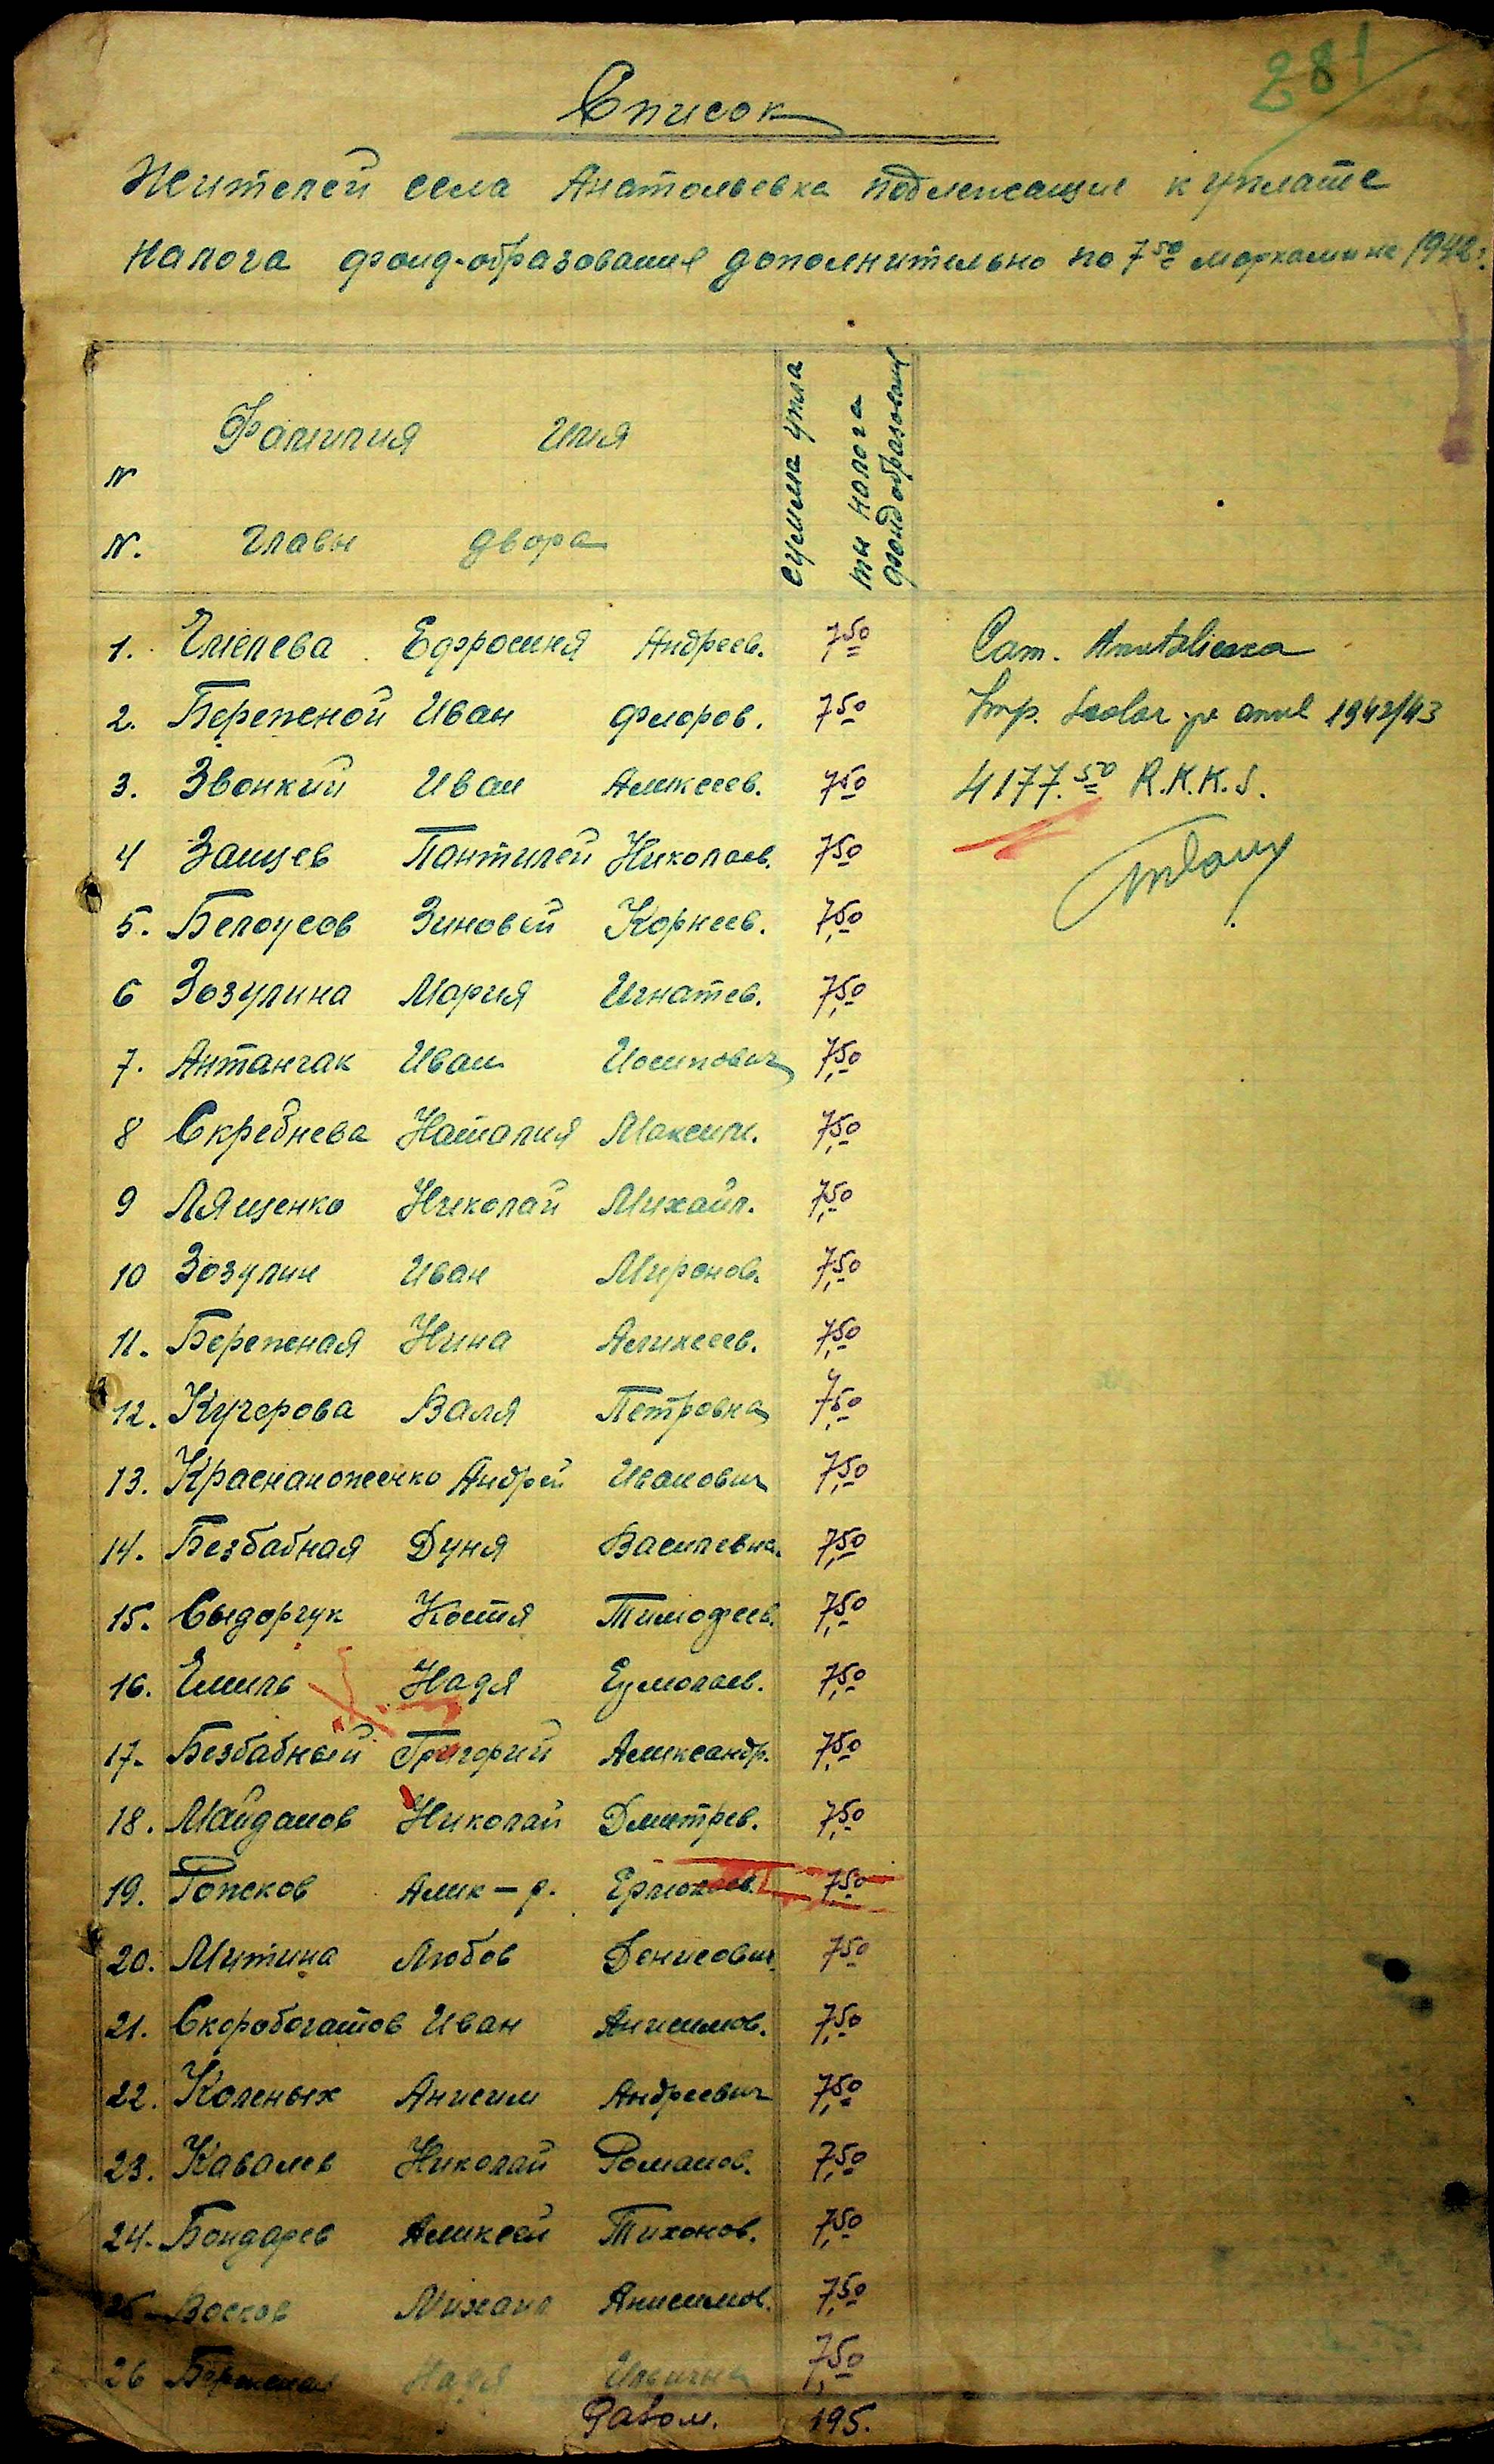 281
Список
Жителей села Анатольевка подлежащие к уплате
налога фонд-образования дополнительно по 7 50 марками на 1942 г.
N N. Фамилия Имя главы двора
Сумма упла ты налога фонд образования
1. Емелева Ефросиня Андреев. 7 50
Com. Anatolievca
2. Бережной Иван Федоров. 7 50
Imp. scolar pe anul 1942/43
3. Звонкий Иван Алексеев. 7 50
4177.50 R.K.K.S.
4 Зайцев Пантилей Николаев. 7 50
5. Белоусов Зиновий Корнеев. 7,50
6 Зозулина Мария Игнатев. 7,50
7. Антанчак Иван Иосипович 7,50
8 Скребнева Наталия Максим. 7,50
9 Лященко Николай Михайл. 7,50
10 Зозулин Иван Миронов. 7,50
11. Бережная Нина Алексеев. 7,50
12. Кучерова Валя Петровна 7,50
13. Краснаноженко Андрей Иванович 7,50
14. Безбабная Дуня Василевна. 7,50
15. Сыдорчук Костя Тимофеев. 7,50
16. Емиль Надя 7,50
17. Безбабный Григорий Александр. 7,50
18. Майданов Николай Дмитрев. 7,50
19. Алек-р. 7,50
20. Митина Любов Денисович. 7 50
21. Скоробогатов Иван Анисимов. 7,50
22. Коленых Анисим Андреевич 7,50
23. Кавалев Николай Романов. 7,50
24. Бондарев Алексей Тихонов. 7,50
25 Восков Михаил Анисимов. 7,50
26 Бережная Надя Ильична 7,50
Разом. 195.